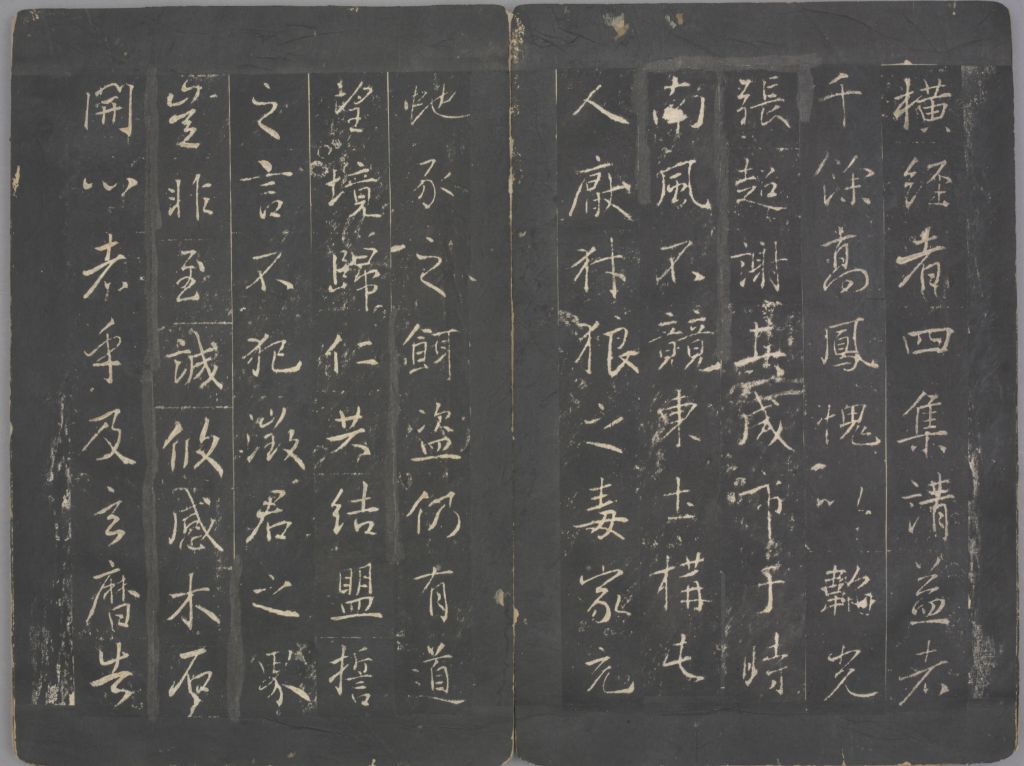 橫經者四集請益者
千餘高鳳愧以鞱光
張超謝其成市于時
南風不競東土構屯
人厭豺狼之毒家充
虵豕之餌盜仍有道
望境歸仁共結盟誓
之言不犯徵君之聚
豈非至誠攸感木石
開心者乎及玄曆告